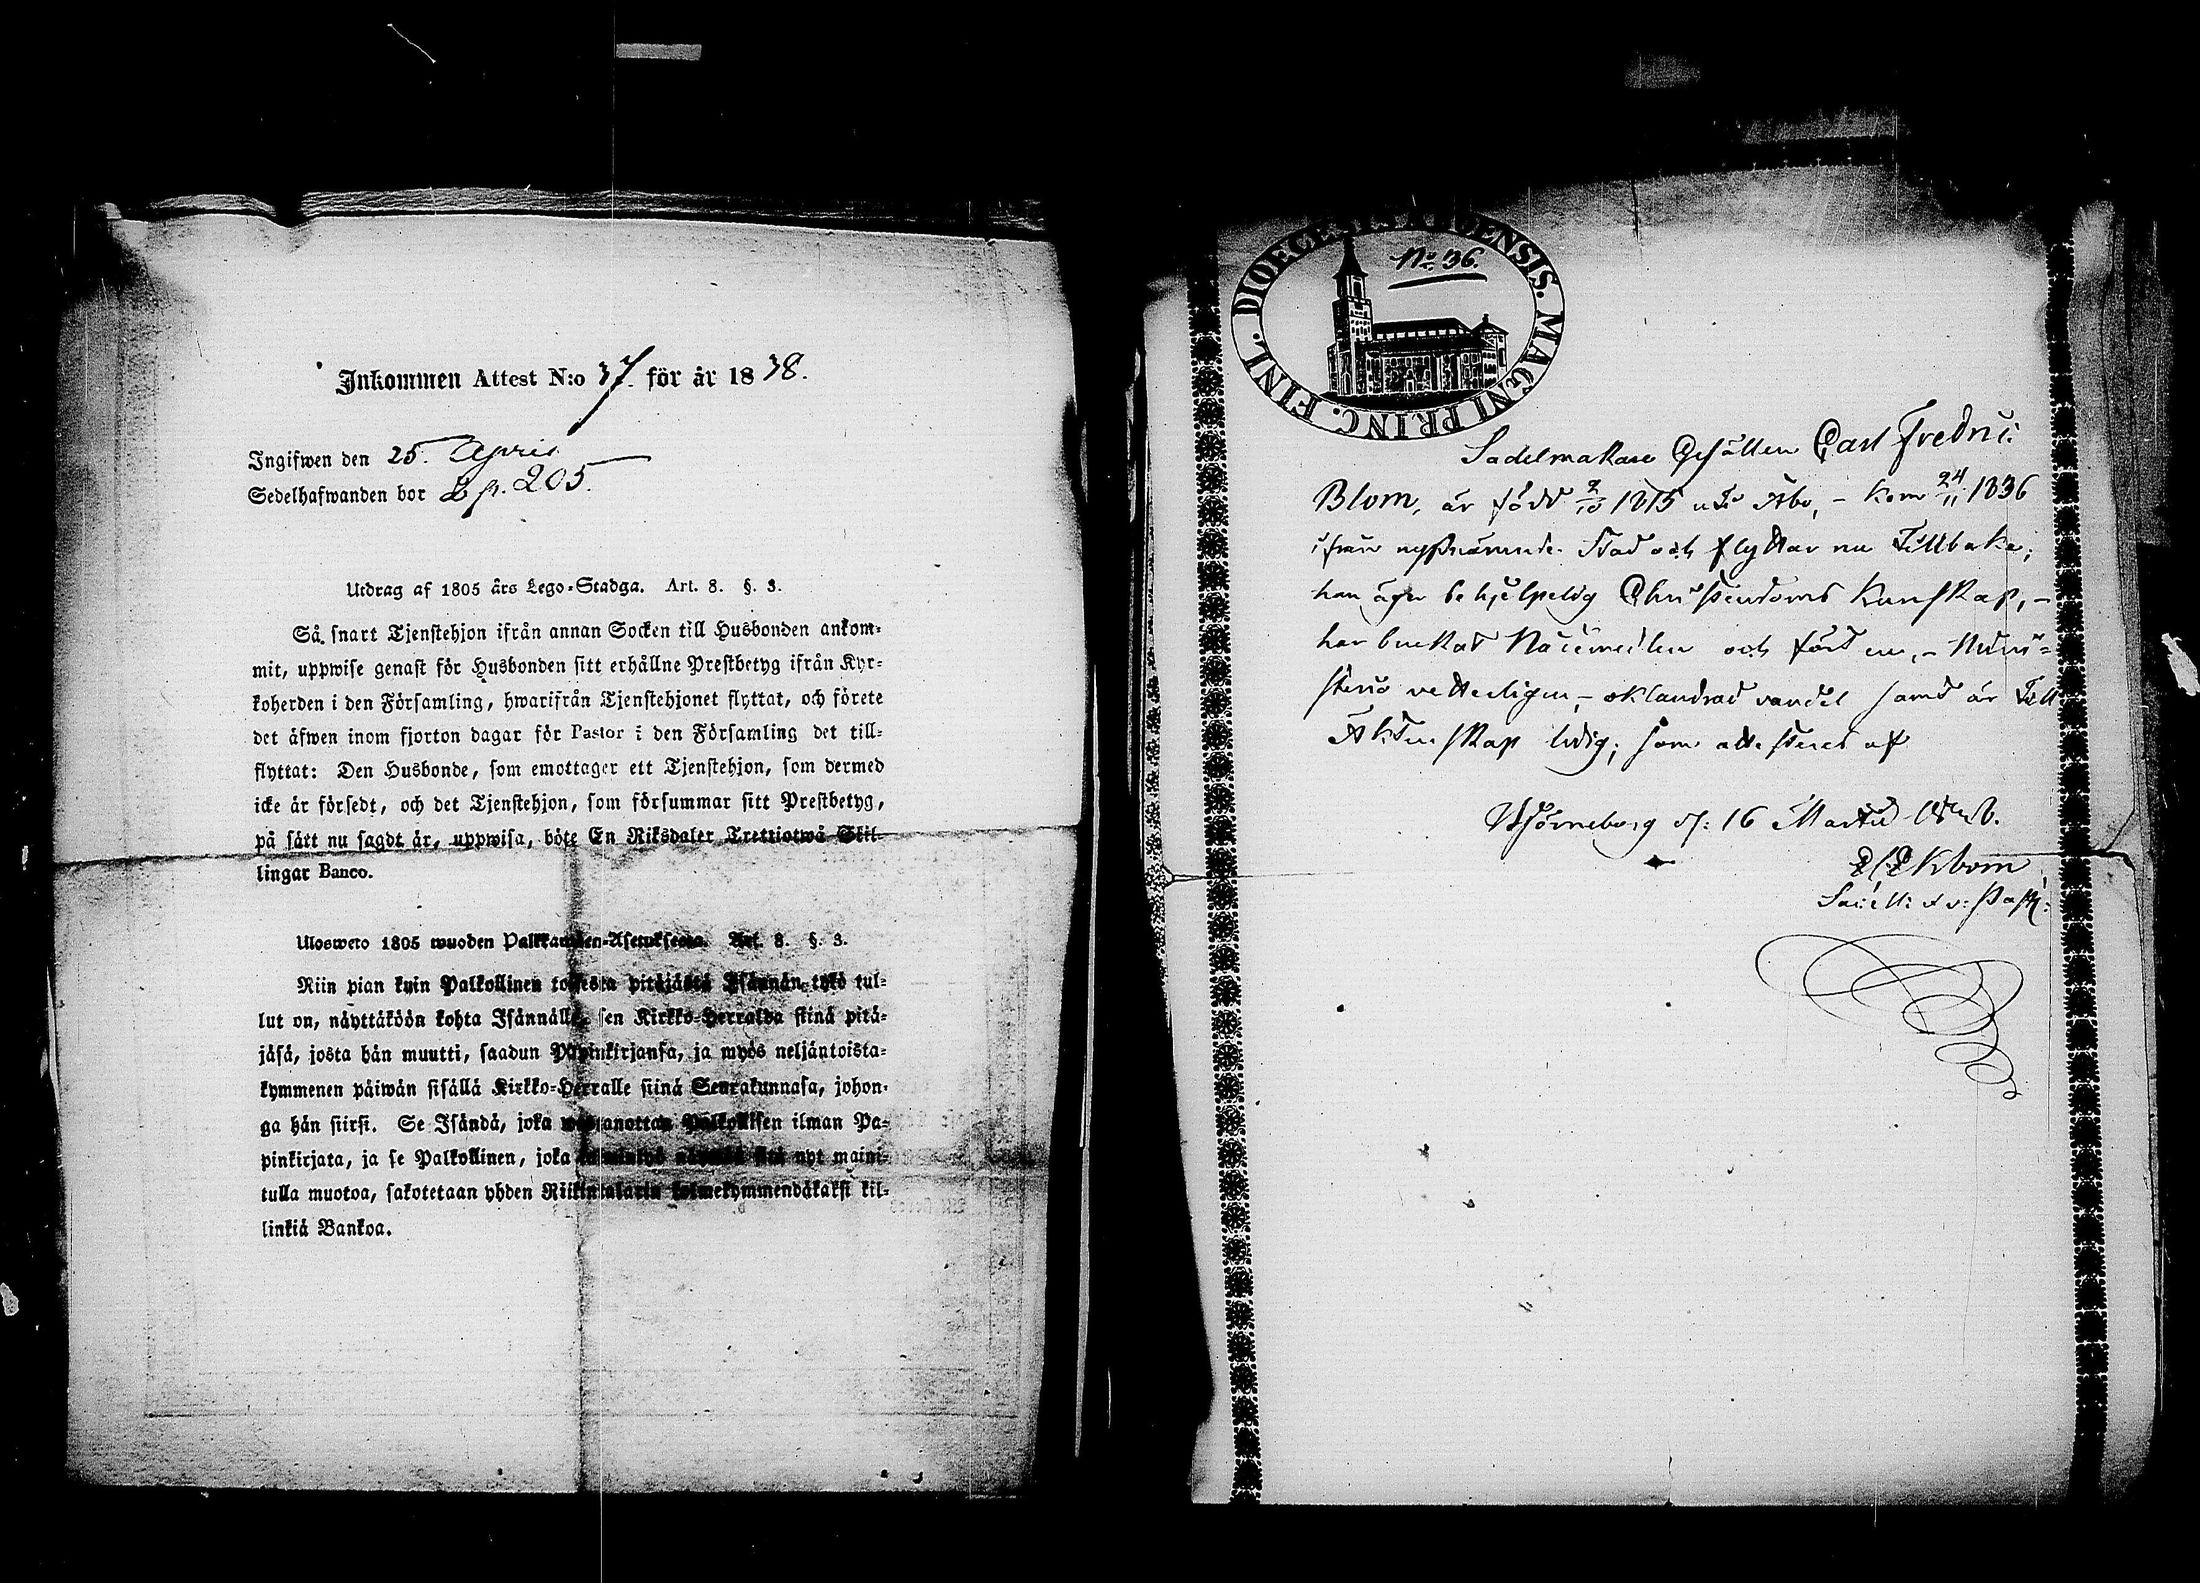 Inkommen Attest N:o 37. för år 1838.
Ingifwen den 25. April
Sedelhafwanden bor 205.
Utdrag af 1805 års Lego-Stadga. Art. 8. §. 3.
Så snart Tjenstehjon ifrån annan Socken till Husbonden ankom-
mit, uppwise genast för Husbonden sitt erhållne Prestbetyg ifrån Kyr-
koherden i den Församling, hwarifrån Tjenstehjonet flyttat, och förete
det äfwen inom fjorton dagar för Pastor i den Församling det till-
flyttat: Den Husbonde, som emottager ett Tjenstehjon, som dermed
icke är försedt, och det Tjenstehjon, som försummar sitt Prestbetyg,
på sätt nu sagdt är, uppwisa, böte En Riksdaler Trettiotwå Skil-
lingar Banco.
Ulosweto 1805 wuoden Palkkawäen-Asetuksesta. Art. 8. §. 3.
Niin pian kuin Palkollinen toisesta pitäjästä Isännän tykö tul-
lut on, näyttäköön kohta Isännälle, sen Kirkko-Herralda siinä pitä-
jäsä, josta hän muutti, saadun Papinkirjansa, ja myös neljäntoista-
kymmenen päiwän sisällä Kirkko-Herralle siinä Seurakunnasa, johon-
ga hän siirsi. Se Isändä, joka wastanottaa Palkollisen ilman Pa-
pinkirjata, ja se Palkollinen, joka nyt maini-
tulla muotoa, sakotetaan yhden Riikintalarin kolmekymmendäkaksi kil-
linkiä Bankoa.
DIOECESIS ABOENSIS. MAGNI PRINC. FINL.
No. 36.
Sadelmakare Gesällen Carl Fredric
Blom, är född 2/10 1815 uti Åbo, - kom 24/11 1836
ifrån nyssnämnde Stad och flyttar nu Tillbaka;
han äger behjelpelig Christendoms Kunskap, -
har brukat Nådemedlen och fört en, - Mini-
sterio vetterligen, - oklandrad vandel samt är Till
Äktenskap ledig; som attesteras af
Björneborg d: 16 Martii 1838.
Ekbom